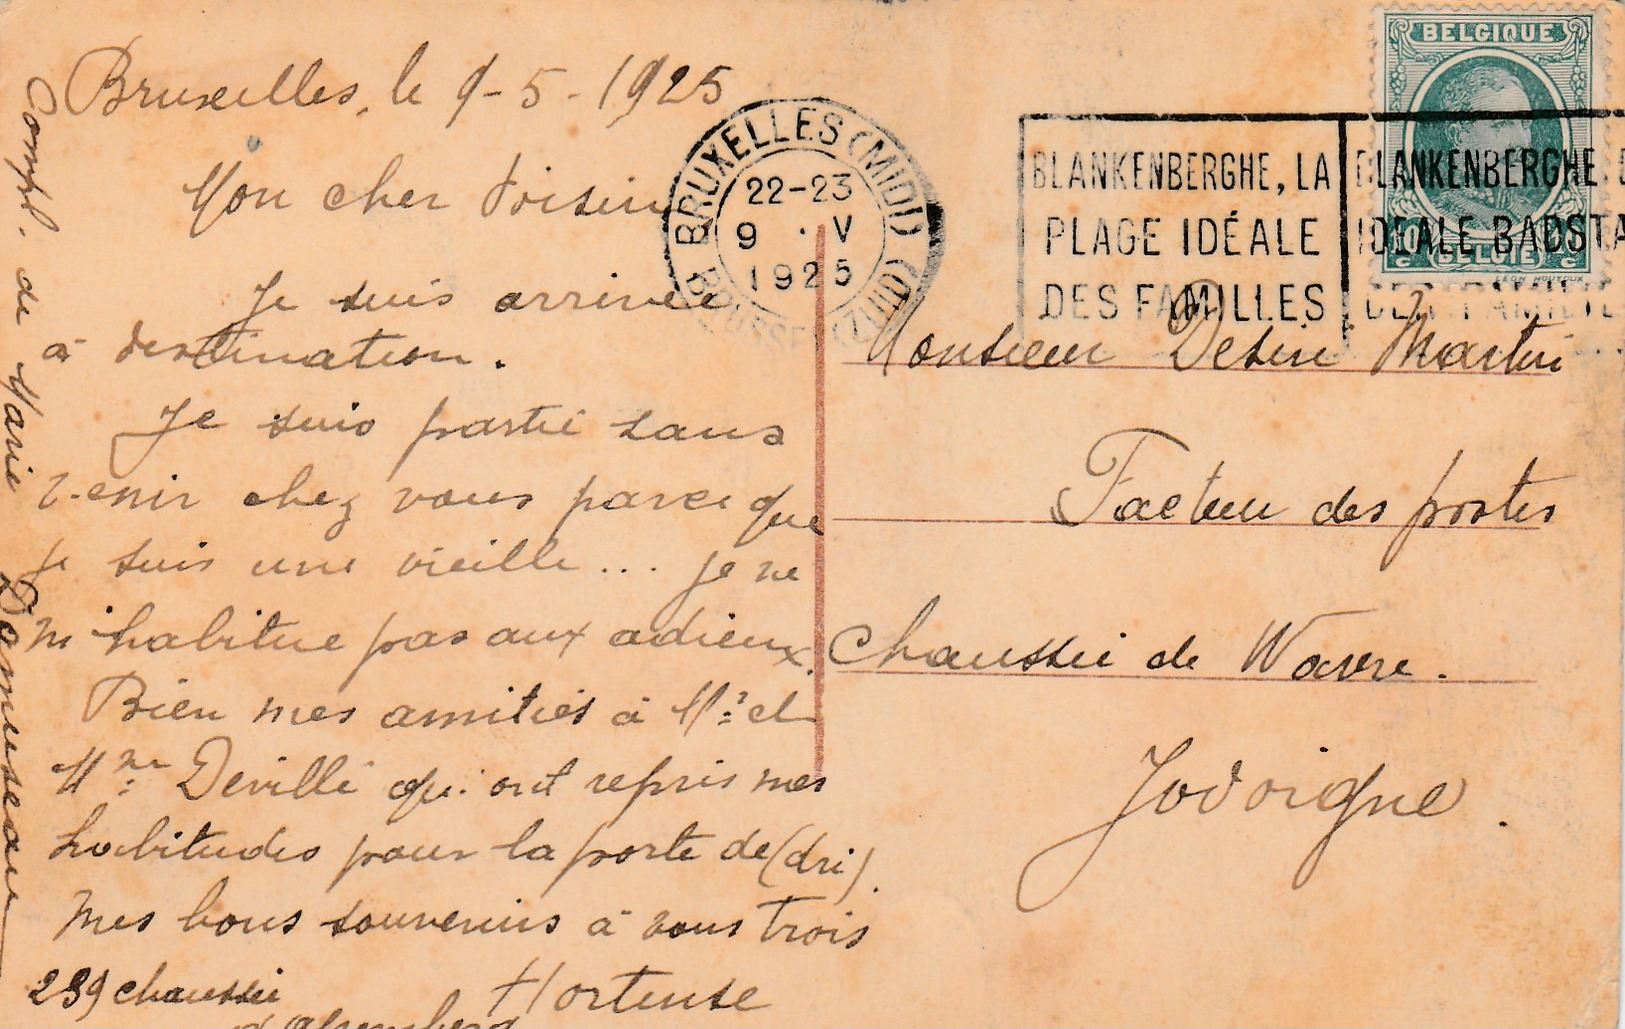 Bruxelles, le 9-5-1925
Mon cher Voisin
Je suis arrivée
à destination.
Je suis partie sans
venir chez vous parce que
je suis une vieille... je ne
m'habitue pas aux adieux.
Bien mes amitiés à Mr et
Mme Deville qui ont repris mes
habitudes pour la porte de (dri).
Mes bons souvenirs à vous trois
Hortense
239 chaussée
d'Alsemberg
Compl. de Marie
BRUXELLES (MIDI)
22-23
9 · V
1925
BRUSSEL (ZUID)
BLANKENBERGHE, LA
PLAGE IDÉALE
DES FAMILLES
BLANKENBERGHE
IDEALE BADSTA
DER FAMILIE
BELGIQUE
10 c (BELGIË) c
Monsieur Désiré Martin
Facteur des postes
Chaussée de Wavre.
Jodoigne.